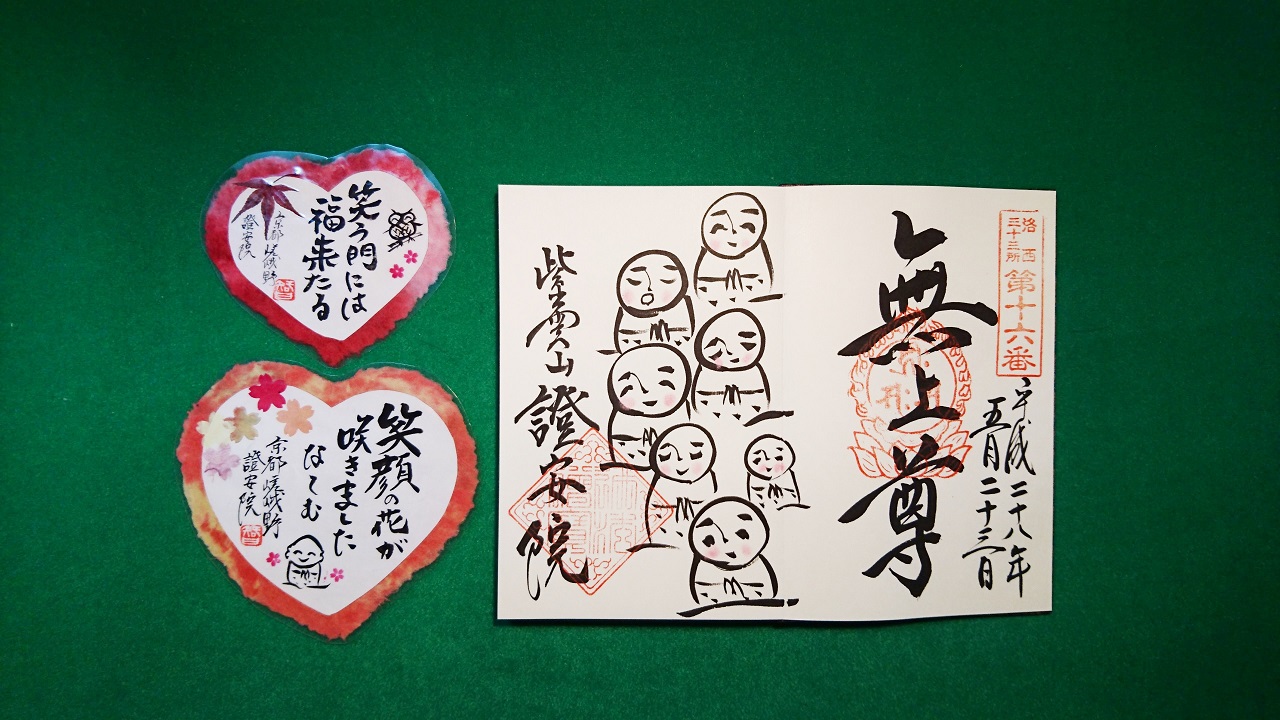 笑う門には
福来たる
京都 嵯峨野
證安院
笑顔の花が
咲きました
なむ
京都 嵯峨野
證安院
洛西
三十三所
第十六番
平成二十八年
五月二十三日
無上尊
紫雲山 證安院